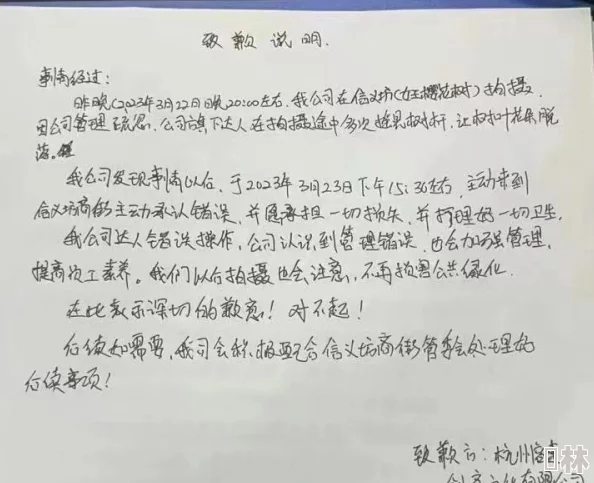 致歉说明.
事情经过：
昨晚(2023年3月22日晚20:00左右,我公司在信义坊(女王樱花树)拍摄.
因公司管理疏忽.公司旗下达人在拍摄途中多次摇晃树杆.让树叶花朵脱
落.
我公司发现事情以后,于2023年3月23日下午15:30左右,主动来到
信义坊商街主动承认错误,并愿承担一切损失,并打理好一切卫生,
我公司达人错误操作,公司认识到管理错误,也会加强管理,
提高员工素养。我们以后拍摄也会注意,不再损害公共绿化.
在此表示深切的歉意!对不起!
后续如需要,我司会积极配合信义坊商街管委会处理好
后续事项!
致歉方:杭州
文化有限公司
林